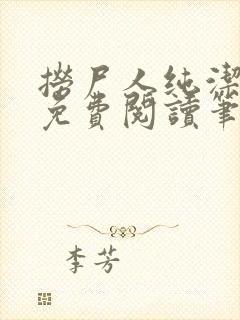 撈尸人純潔
免費閱讀筆
李芳